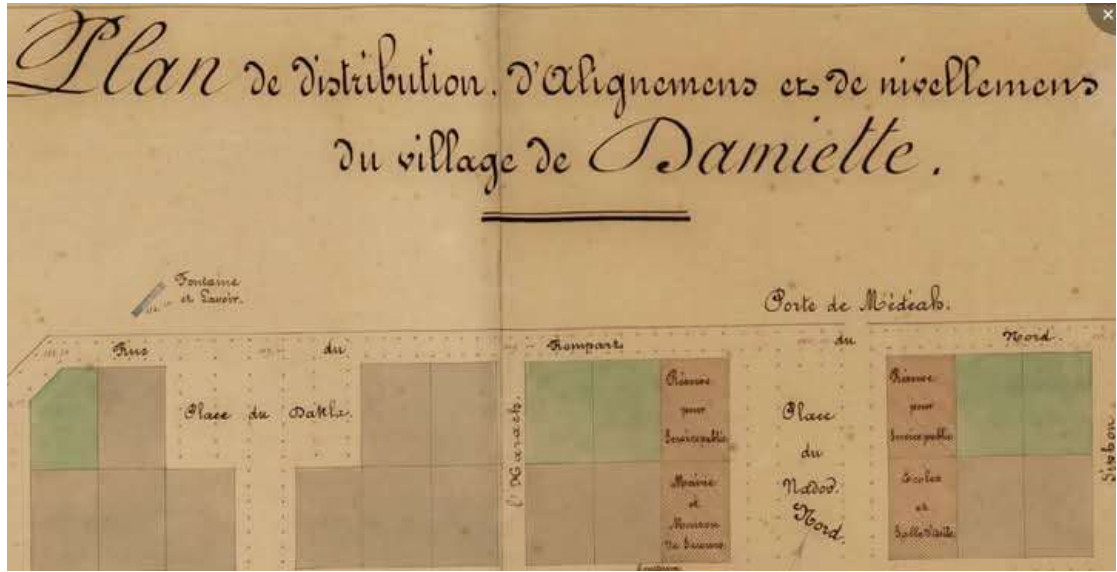 Plan de distribution, d'Alignemens et de nivellemens
du village de Damiette.
Fontaine
et Lavoir.
Porte de Médéah.
Rue du Rempart du Nord.
Place du Dakla.
l'Harach.
Réserve
pour
Service public
Mairie
et
Maison
de Secours
Place
du
Nador.
Nord.
Réserve
pour
Service public
Ecoles
et
Salle d'asile